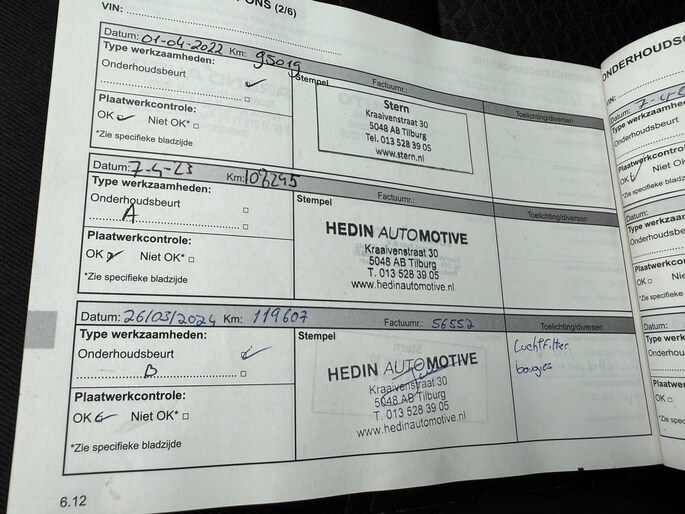 ONS (2/6)
VIN:
Datum: 01-04-2022 Km: 95019 Factuurnr.: Toelichting/diversen
Type werkzaamheden:
Onderhoudsbeurt
Plaatwerkcontrole:
OK Niet OK*
*Zie specifieke bladzijde
Stempel
Stern
Kraaivenstraat 30
5048 AB Tilburg
Tel. 013 528 39 05
www.stern.nl
Datum: 7-4-23 Km: 108245 Factuurnr.: Toelichting/diversen
Type werkzaamheden:
Onderhoudsbeurt
A
Plaatwerkcontrole:
OK Niet OK*
*Zie specifieke bladzijde
Stempel
HEDIN AUTOMOTIVE
Kraaivenstraat 30
5048 AB Tilburg
T. 013 528 39 05
www.hedinautomotive.nl
Datum: 26/03/2024 Km: 119607 Factuurnr.: 56552 Toelichting/diversen
Type werkzaamheden:
Onderhoudsbeurt
B
Plaatwerkcontrole:
OK Niet OK*
*Zie specifieke bladzijde
Stempel
HEDIN AUTOMOTIVE
Kraaivenstraat 30
5048 AB Tilburg
T. 013 528 39 05
www.hedinautomotive.nl
Luchtfilter
bougies
6.12
ONDERHOUDSC
VIN:
Datum:
Type werkzaam
Onderhoudsbeurt
Plaatwerkcontrole
OK Niet OK
*Zie specifieke
Datum:
Type werkza
Onderhoudsb
Plaatwerkcon
OK Nie
*Zie specifiek
Datum:
Type werk
Onderhoud
Plaatwerk
OK
*Zie speci